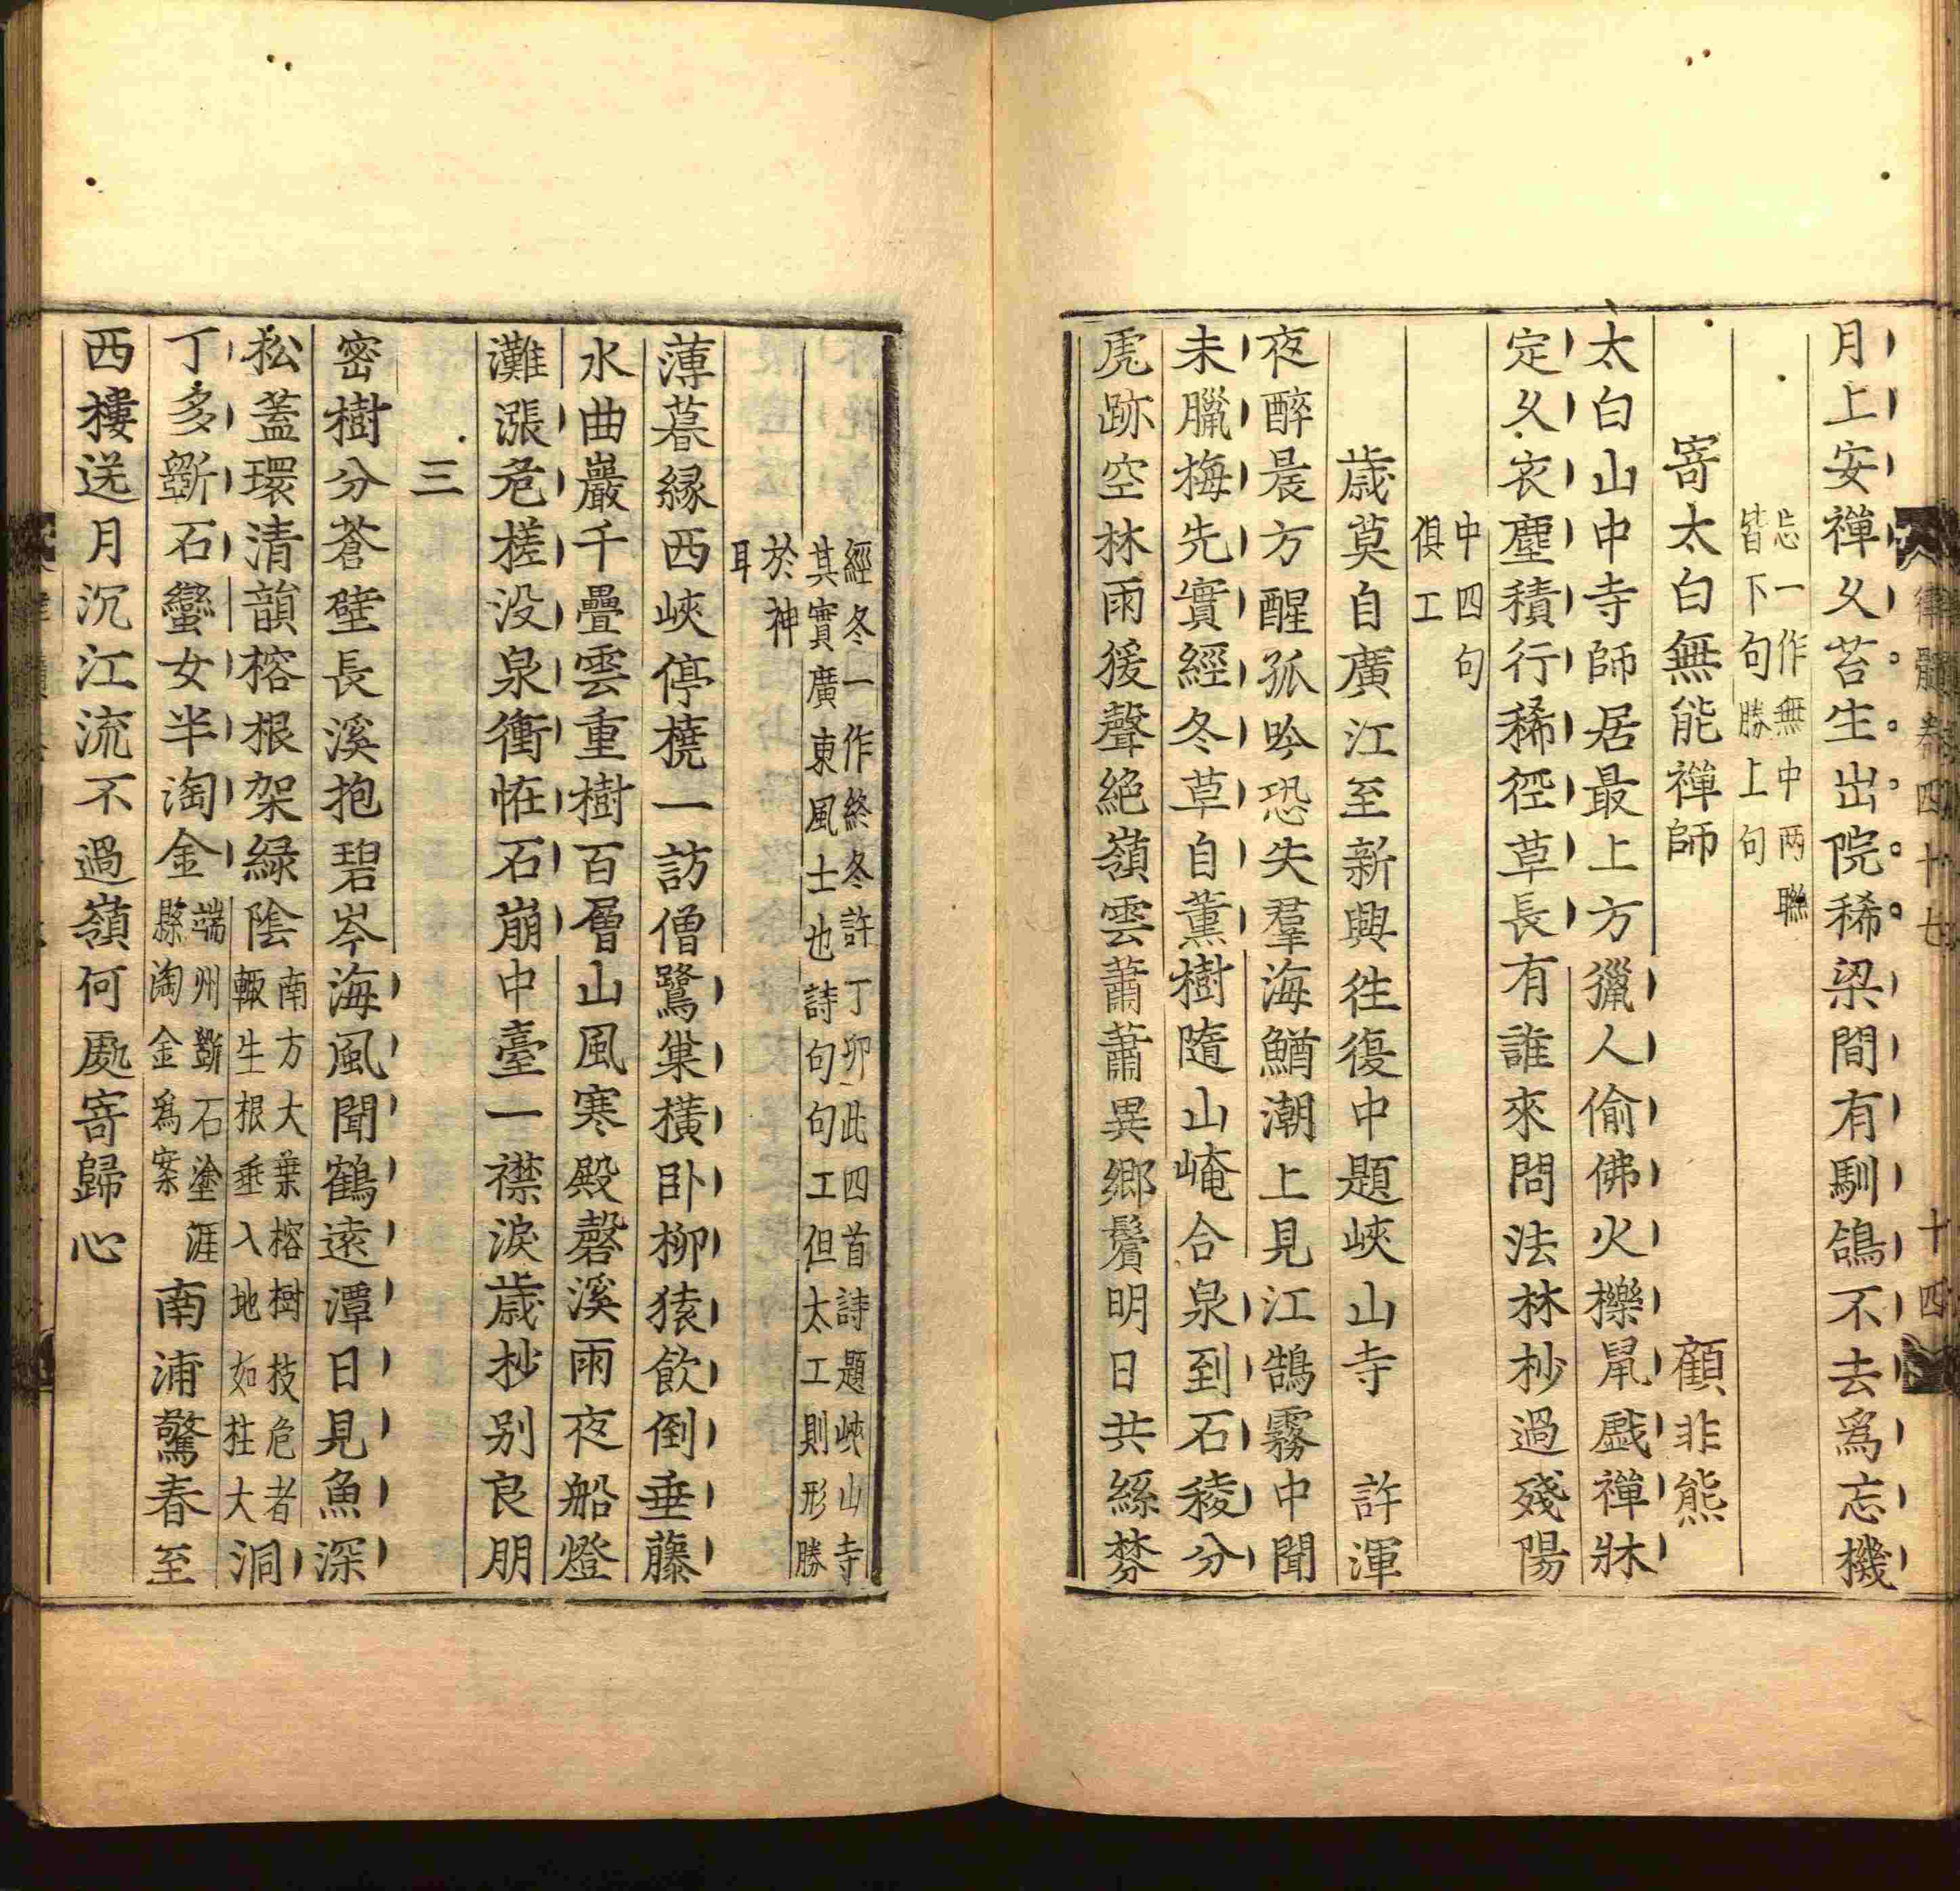 律髓卷四十七
十四
月上安禪久苔生出院稀梁間有馴鴿不去爲忘機
忘一作無中两聯
皆下句勝上句
寄太白無能禪師
顧非熊
太白山中寺師居最上方獵人偷佛火櫟鼠戲禪牀
定久衣塵積行稀徑草長有誰來問法林杪過殘陽
中四句
俱工
歲莫自廣江至新興徃復中題峽山寺
許渾
夜醉晨方醒孤吟恐失羣海鰌潮上見江鵠霧中聞
未臘梅先實經冬草自薰樹隨山崦合泉到石稜分
虎跡空林雨猨聲絶嶺雲蕭蕭異鄉鬢明日共絲棼
經冬一作終冬許丁卯此四首詩題峽山寺
其實廣東風士也詩句句工但太工則形勝
於神
耳
薄暮縁西峽停橈一訪僧鷺巢橫卧柳猿飲倒垂藤
水曲巖千疊雲重樹百層山風寒殿磬溪雨夜船燈
灘漲危槎没泉衝恠石崩中臺一襟淚歲杪别良朋
三
密樹分蒼壁長溪抱碧岑海風聞鶴遠潭日見魚深
松蓋環清韻榕根架緑陰
南方大葉榕樹技危者
輙生根垂入地如拄大
洞
丁多斲石蠻女半淘金
端州斷石塗涯
縣淘金爲業
南浦驚春至
西樓送月沉江流不過嶺何處寄歸心